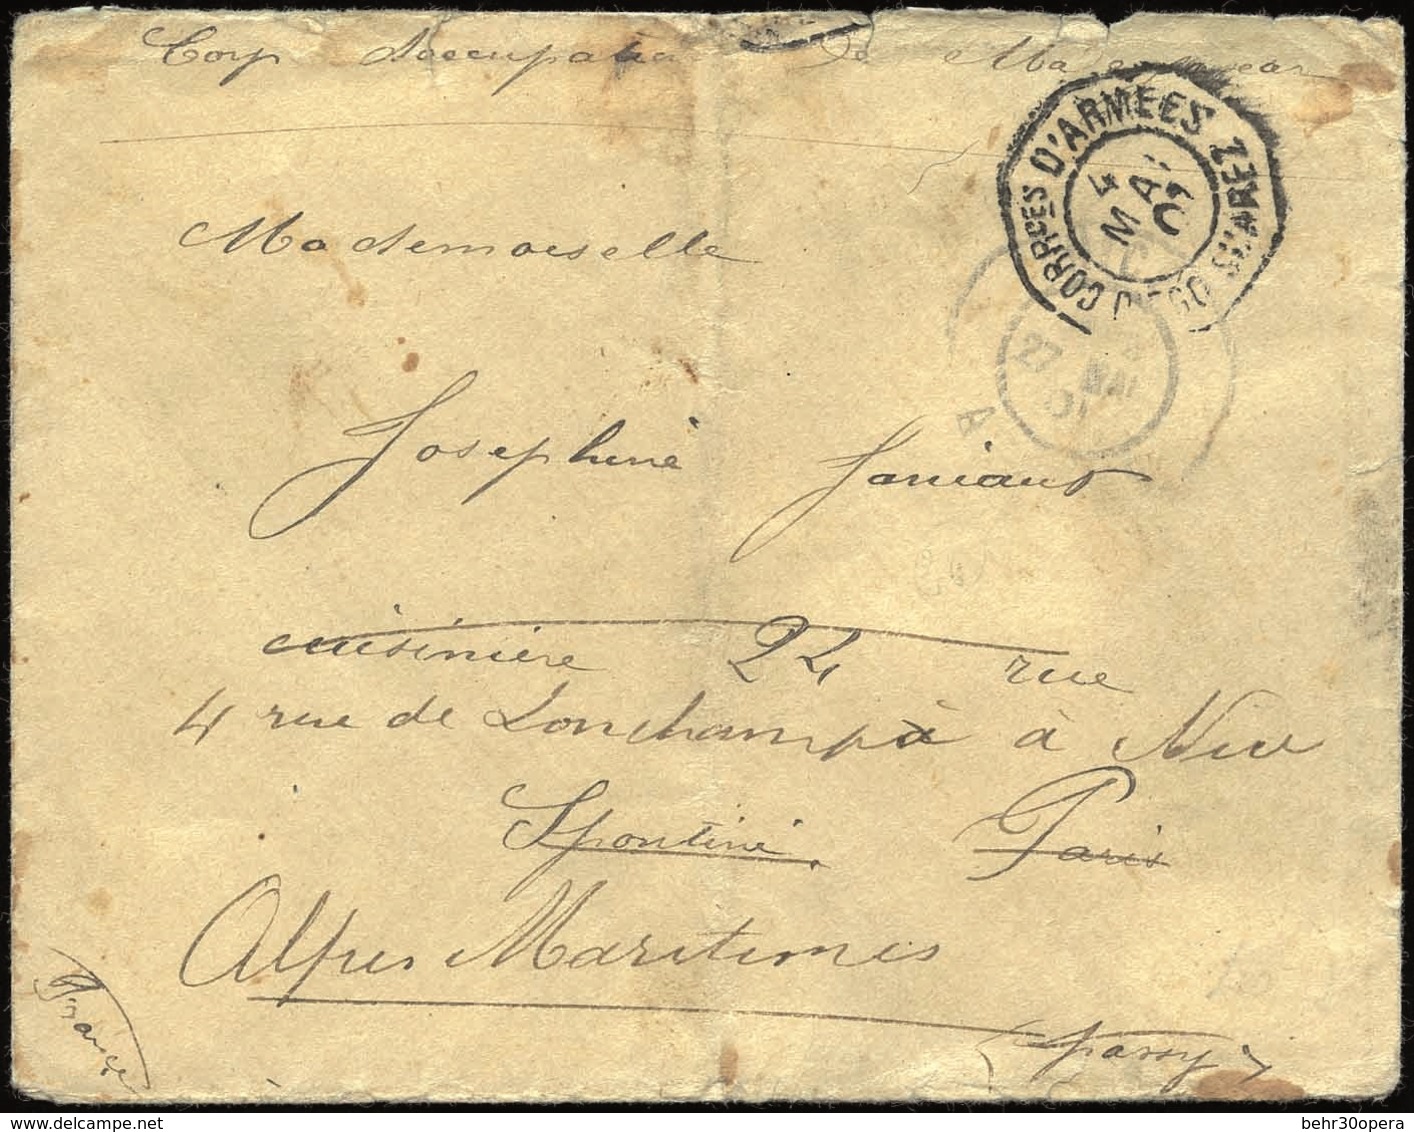 Corp d'occupation de Madagascar
CORRES D'ARMEES
DIEGO SUAREZ
4
MAI
01
Mademoiselle
27 MAI
01
A
Josephine Janiaud
cuisinière 24 rue
4 rue de Lonchamp à à Nice
Spontini Paris
Alpes Maritimes
France
(Passy)
behr30opera